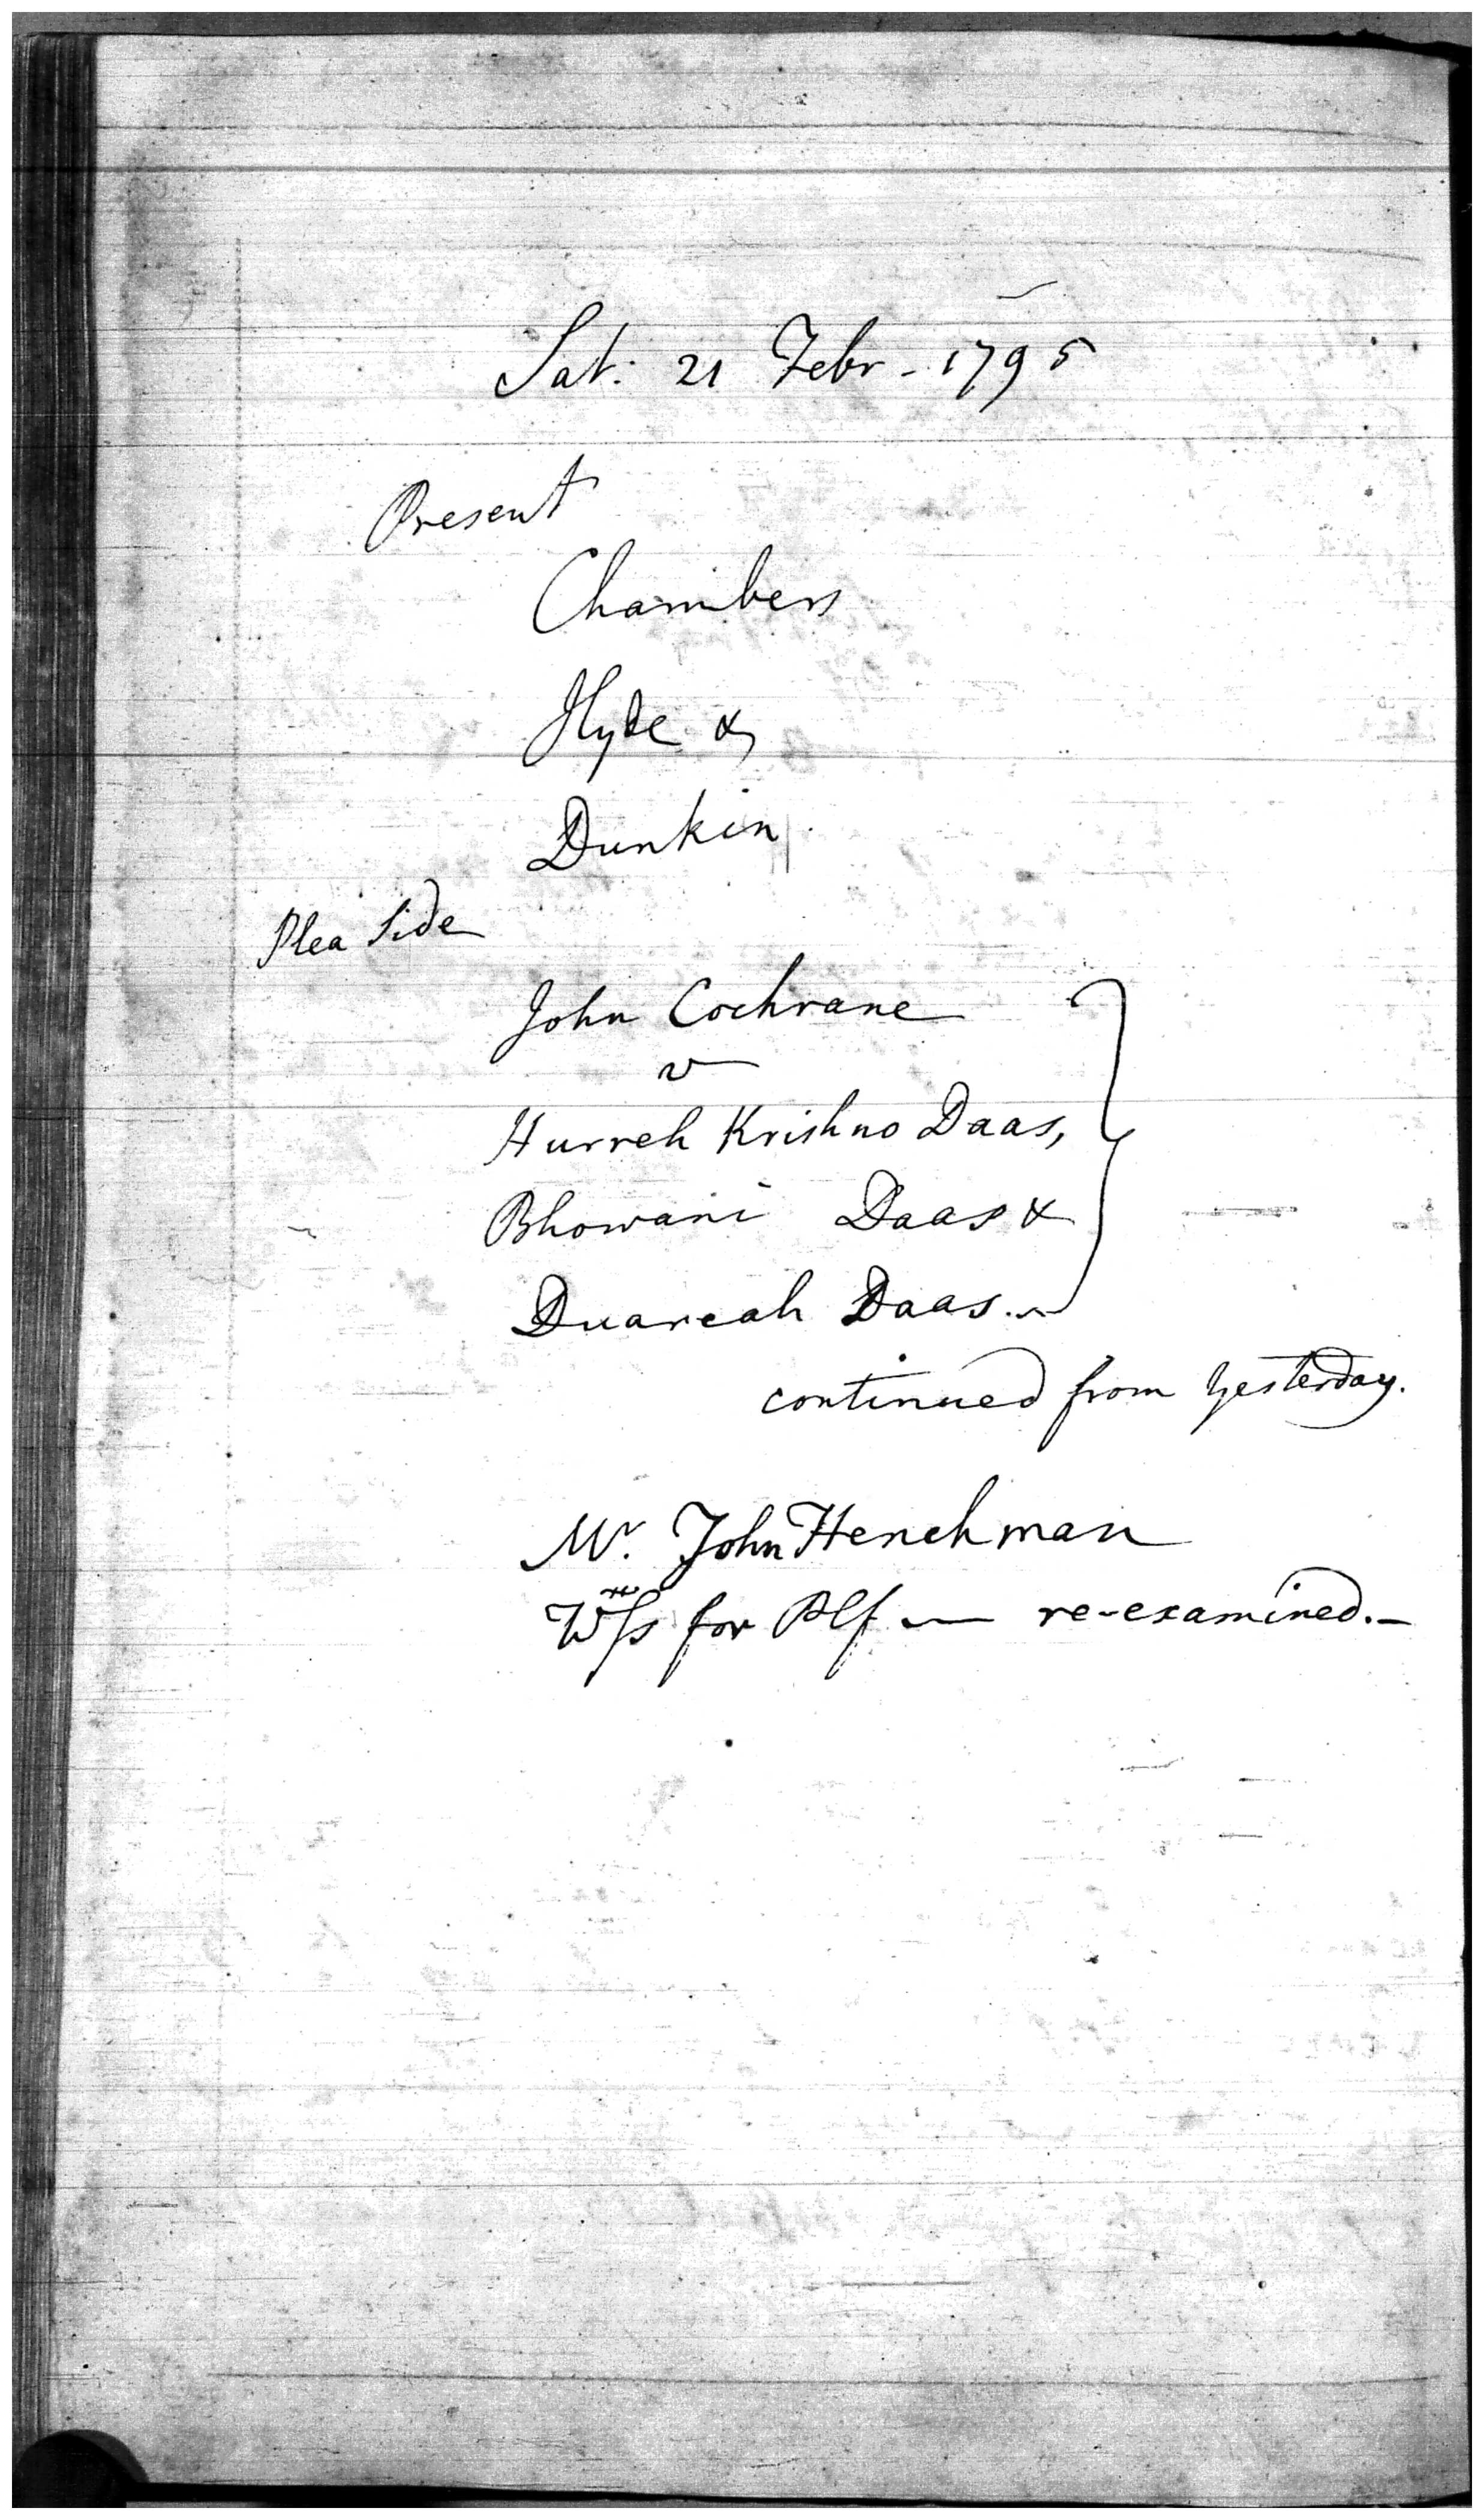 Sat: 21 Febr - 1795
Present
Chambers
Hyde &
Dunkin
Plea Side
John Cochrane
v
Hurreh Krishno Daas,
Bhowani Daas &
Duarcah Daas.
continued from Yesterday.
Mr. John Henchman
Wss for Plf — re-examined.—